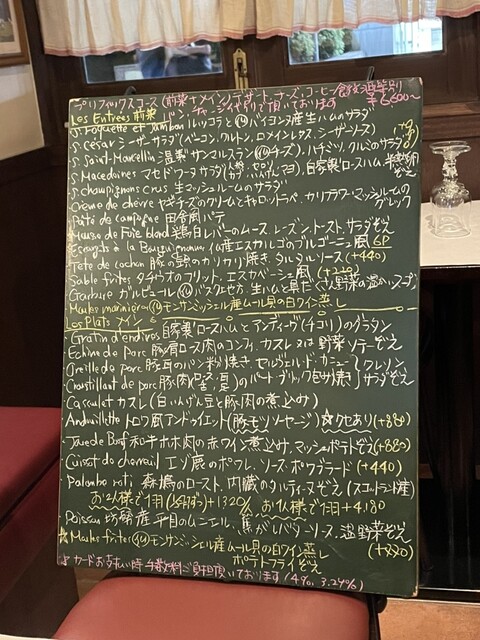 プリフィックスコース (前菜+メイン+デザート、ナーズ、コーヒー 飲物・喫茶別)
パン、チャージ代別で頂いております ¥6,600〜
Los Entrées 前菜
S. roquette et jambon ルッコラと仏バイヨンヌ産生ハムのサラダ
S. César シーザーサラダ(ベーコン、クルトン、ロメインレタス、シーザーソース)
S. Saint-Marcellin 温製サンマルスラン(仏チーズ)、ハチミツ、クルミのサラダ
S. Macedoines マセドワーヌサラダ 自家製ロースハム
S. champignons crus 生マッシュルームのサラダ
Crème de chèvre ヤギチーズのクリームとキャロットラペ、カリフラワー・マッシュルームのグレック
Pâté de campagne 田舎風パテ
Mousse de Foie blond 鶏白レバーのムース、レーズン、トースト、サラダぞえ
仏産エスカルゴのブルゴーニュ風 6P
Tête de cochon 豚の頭のカリカリ焼き、タルタルソース(+440)
Sable frites タチウオのフリット、エスカベーシュ風(+220)
Garbure ガルビュール 仏バスク地方、生ハムと具だくさん野菜の温かいスープ
Moules marinière 仏モンサンミッシェル産ムール貝の白ワイン蒸し
Los Plats メイン
Gratin d'endives 自家製ロースハムとアンディーヴ(チコリ)のグラタン
Echine de porc 豚肩ロース肉のコンフィ、カスレ又は野菜ソテーぞえ
Oreille de porc 豚耳のパン粉焼き、セルヴェル・ド・カニュー
Croustillant de porc 豚肉のパートブリック包み焼き クレソンサラダぞえ
Cassoulet カスレ (白いんげん豆と豚肉の煮込み)
Andouillette トロワ風アンドゥイエット(豚モツソーセージ) ☆クセあり(+880)
Joue de Bœuf 和牛ホホ肉の赤ワイン煮込み、マッシュポテトぞえ(+880)
Cuissot de chevreuil エゾ鹿のポワレ、ソース・ポワヴラード(+440)
Palombe roti 森鳩のロースト、内臓のタルティーヌぞえ (スコットランド産)
お2人様で1羽 +1320 お1人様で1羽+4180
Poisson 産平目のムニエル、焦がしバターソース、温野菜ぞえ
☆Moules frites 仏モンサンミッシェル産ムール貝の白ワイン蒸し ポテトフライぞえ (+220)
☆カードお支払い時手数料ご負担頂いております(4%、3.24%)